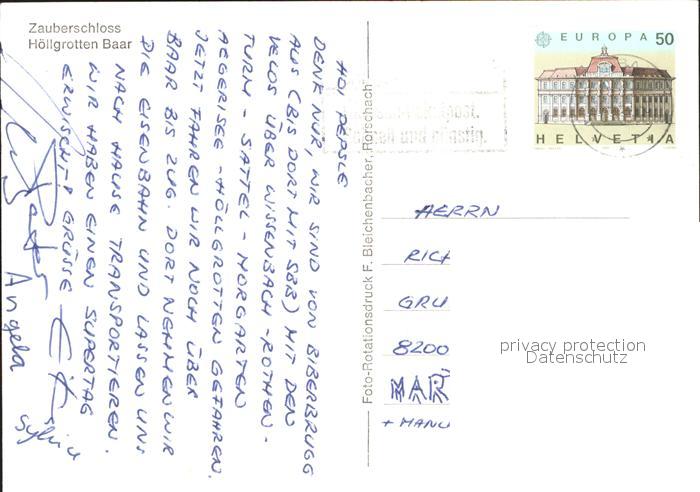 Zauberschloss
Höllgrotten Baar
HOI DEPSLE
DENK NUR, WIR SIND VON BIBERBRUGG
AUS (BIS DORT MIT SBB) MIT DEN
VELOS ÜBER WISSENBACH - ROTHEN-
TURM - SATTEL - MORGARTEN
AEGERISEE - HÖLLGROTTEN GEFAHREN.
JETZT FAHREN WIR NOCH ÜBER
BAAR BIS ZUG. DORT NEHMEN WIR
DIE EISENBAHN UND LASSEN UNS
NACH HAUSE TRANSPORTIEREN.
WIR HABEN EINEN SUPERTAG
ERWISCHT! GRÜSSE
Angela
Sylvia
Foto-Rotationsdruck F. Bleichenbacher, Rorschach
EUROPA 50
HELVETIA
HERRN
RICH
GRU
8200
MAR
+ MANU
privacy protection
Datenschutz